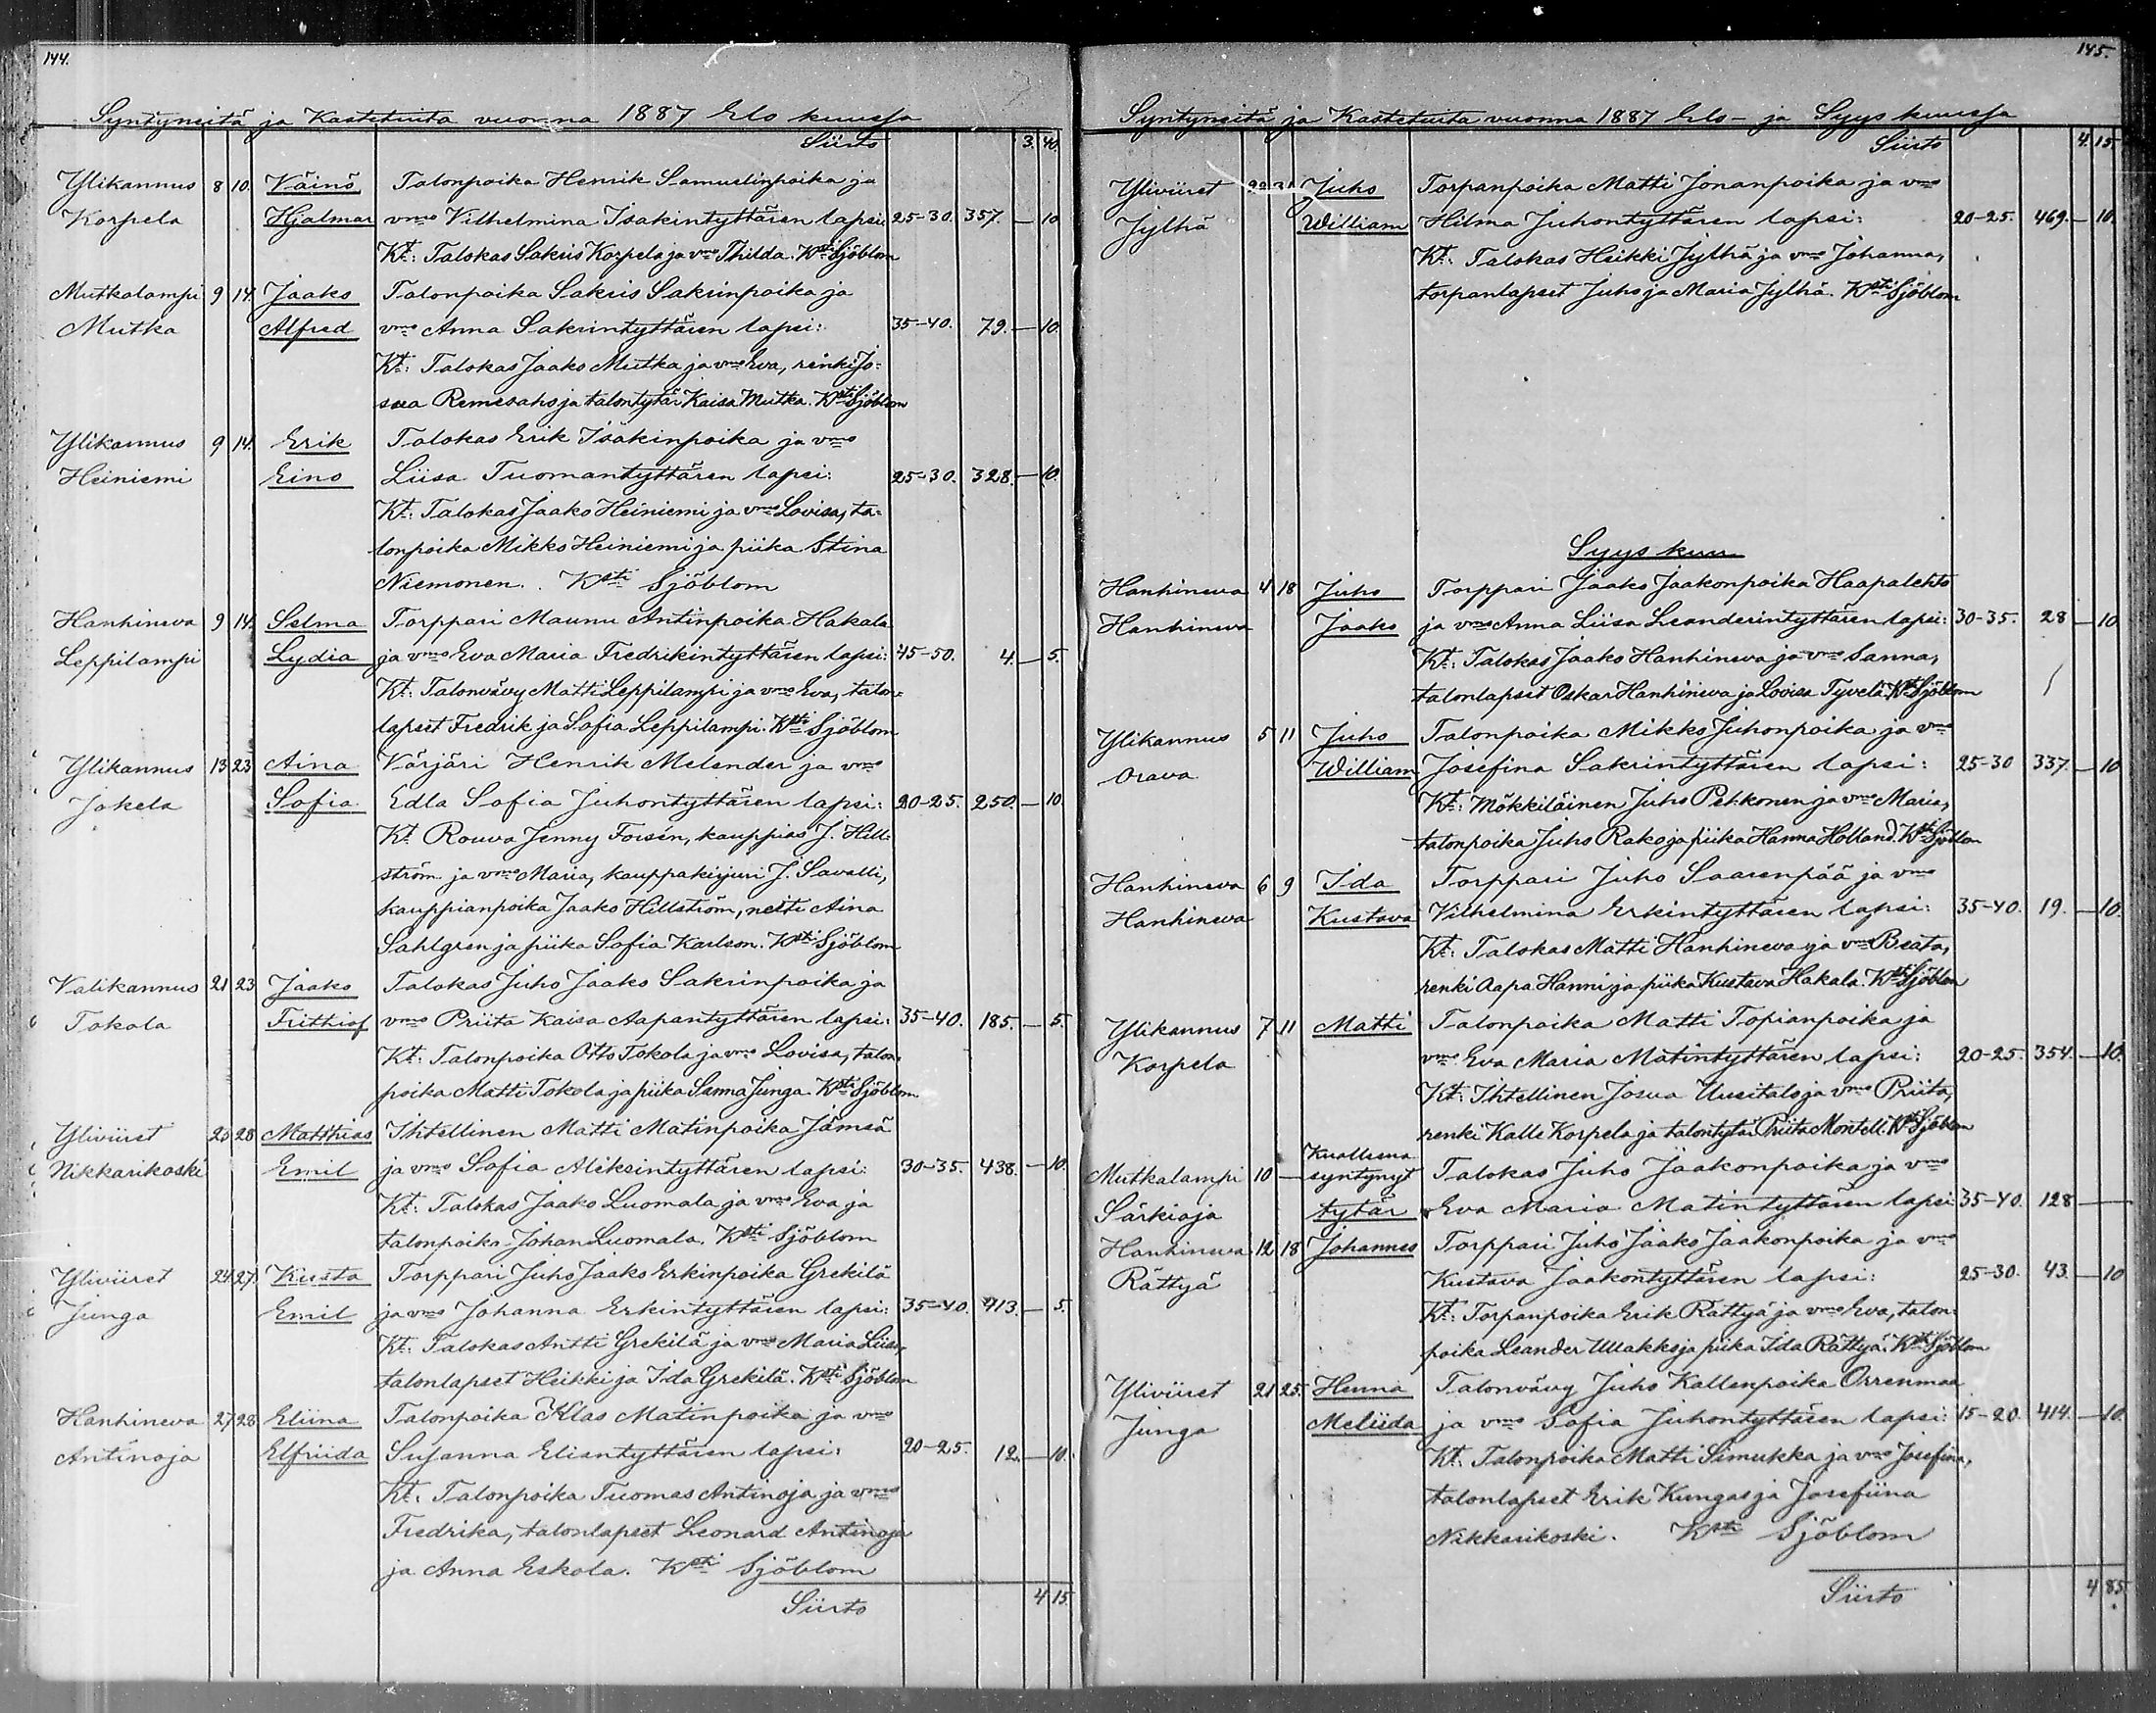 144.
Syntyneitä ja Kastetuita vuonna 1887 Elo kuussa
Siirto 3. 40.
Ylikannus 8 10. Väinö Talonpoika Henrik Samuelinpoika ja
Korpela Hjalmar vmo Vilhelmina Isakintyttären lapsi: 25-30. 357. — 10
Kt: Talokas Sakris Korpela ja vmo Thilda. Ksti Sjöblom
Mutkalampi 9 14. Jaako Talonpoika Sakris Sakrinpoika ja
Mutka Alfred vmo Anna Sakrintyttären lapsi: 35-40. 79. — 10.
Kt: Talokas Jaako Mutka ja vmo Eva, renki Jo-
sua Remesaho ja talontytär Kaisa Mutka. Ksti Sjöblom
Ylikannus 9 14. Erik Talokas Erik Isakinpoika ja vmo
Heiniemi Eino Liisa Tuomantyttären lapsi: 25-30. 328. — 10.
Kt: Talokas Jaako Heiniemi ja vmo Lovisa, ta-
lonpoika Mikko Heiniemi ja piika Stina
Niemonen. Ksti Sjöblom
Hanhineva 9 14. Selma Torppari Maunu Antinpoika Hakala
Leppilampi Lydia ja vmo Eva Maria Fredrikintyttären lapsi: 45-50. 4. — 5.
Kt: Talonvävy Matti Leppilampi ja vmo Eva, talon-
lapset Fredrik ja Sofia Leppilampi. Ksti Sjöblom
Ylikannus 13 23 Aina Värjäri Henrik Melender ja vmo
Jokela Sofia Edla Sofia Juhontyttären lapsi: 20-25. 250. — 10.
Kt Rouva Jenny Forsén, kauppias J. Hill-
ström ja vmo Maria, kauppakirjuri J. Savalli,
kauppianpoika Jaako Hillström, neiti Aina
Sahlgren ja piika Sofia Karlson. Ksti Sjöblom
Välikannus 21 23 Jaako Talokas Juho Jaako Sakrinpoika ja
Tokola Frithiof vmo Priita Kaisa Aapantyttären lapsi: 35-40. 185. — 5.
Kt: Talonpoika Otto Tokola ja vmo Lovisa, talon-
poika Matti Tokola ja piika Sanna Junga Ksti Sjöblom
Yliviiret 28 Matthias Ihtellinen Matti Matinpoika Jämsä
Nikkarikoski Emil ja vmo Sofia Aleksintyttären lapsi: 30-35. 438. — 10.
Kt: Talokas Jaako Luomala ja vmo Eva ja
talonpoika Johan Luomala. Ksti Sjöblom
Yliviiret 24 27. Kusta Torppari Juho Jaako Erkinpoika Grekilä
Junga Emil ja vmo Johanna Erkintyttären lapsi: 35-40. 413. — 5.
Kt: Talokas Antti Grekilä ja vmo Maria Liisa,
talonlapset Heikki ja Ida Grekilä. Ksti Sjöblom
Hanhineva 27 28 Eliina Talonpoika Klas Matinpoika ja vmo
Antinoja Elfriida Susanna Eliantyttären lapsi: 20-25. 12. — 10.
Kt: Talonpoika Tuomas Antinoja ja vmo
Fredrika, talonlapset Leonard Antinoja
ja Anna Eskola. Ksti Sjöblom
Siirto 4 15.
145.
Syntyneitä ja Kastetuita vuonna 1887 Elo- ja Syys kuussa
Siirto 4. 15
Yliviiret 31 Juho Torpanpoika Matti Jonanpoika ja vmo
Jylhä William Hilma Juhontyttären lapsi: 20-25. 469. — 10.
Kt: Talokas Heikki Jylhä ja vmo Johanna,
torpanlapset Juho ja Maria Jylhä. Ksti Sjöblom
Syys kuu
Hanhineva 4 18 Juho Torppari Jaako Jaakonpoika Haapalehto
Hanhineva Jaako ja vmo Anna Liisa Leanderintyttären lapsi: 30-35. 28 — 10
Kt: Talokas Jaako Hanhineva ja vmo Sanna,
talonlapset Oskar Hanhineva ja Lovisa Tyvelä Ksti Sjöblom
Ylikannus 5 11 Juho Talonpoika Mikko Juhonpoika ja vmo
Orava William Josefina Sakrintyttären lapsi: 25-30 337. — 10
Kt: Mökkiläinen Juho Pekkonen ja vmo Maria,
talonpoika Juho Rako ja piika Hanna Holland. Ksti Sjöblom
Hanhineva 6 9 Ida Torppari Juho Saarenpää ja vmo
Hanhineva Kustava Vilhelmina Erkintyttären lapsi: 35-40. 19. — 10.
Kt: Talokas Matti Hanhineva ja vmo Beata,
renki Aapa Hanni ja piika Kustava Hakala. Ksti Sjöblom
Ylikannus 7 11 Matti Talonpoika Matti Topianpoika ja
Korpela vmo Eva Maria Matintyttären lapsi: 20-25. 354. — 10.
Kt: Ihtellinen Josua Uusitalo ja vmo Priita,
renki Kalle Korpela ja talontytär Priita Montell. Ksti Sjöblom
Kuolleena
Mutkalampi 10 — syntynyt Talokas Juho Jaakonpoika ja vmo
Särkioja tytär Eva Maria Matintyttären lapsi 35-40. 128 —
Hanhineva 12 18 Johannes Torppari Juho Jaako Jaakonpoika ja vmo
Rättyä Kustava Jaakontyttären lapsi: 25-30. 43. — 10
Kt: Torpanpoika Erik Rättyä ja vmo Eva, talon-
poika Leander Ullakko ja piika Ida Rättyä. Ksti Sjöblom
Yliviiret 21 25. Henna Talonvävy Juho Kallenpoika Orrenmaa
Junga Meliida ja vmo Sofia Juhontyttären lapsi: 15-20. 414. — 10.
Kt: Talonpoika Matti Simukka ja vmo Josefina,
talonlapset Erik Kungas ja Josefiina
Nikkarikoski. Ksti Sjöblom
Siirto 4 85